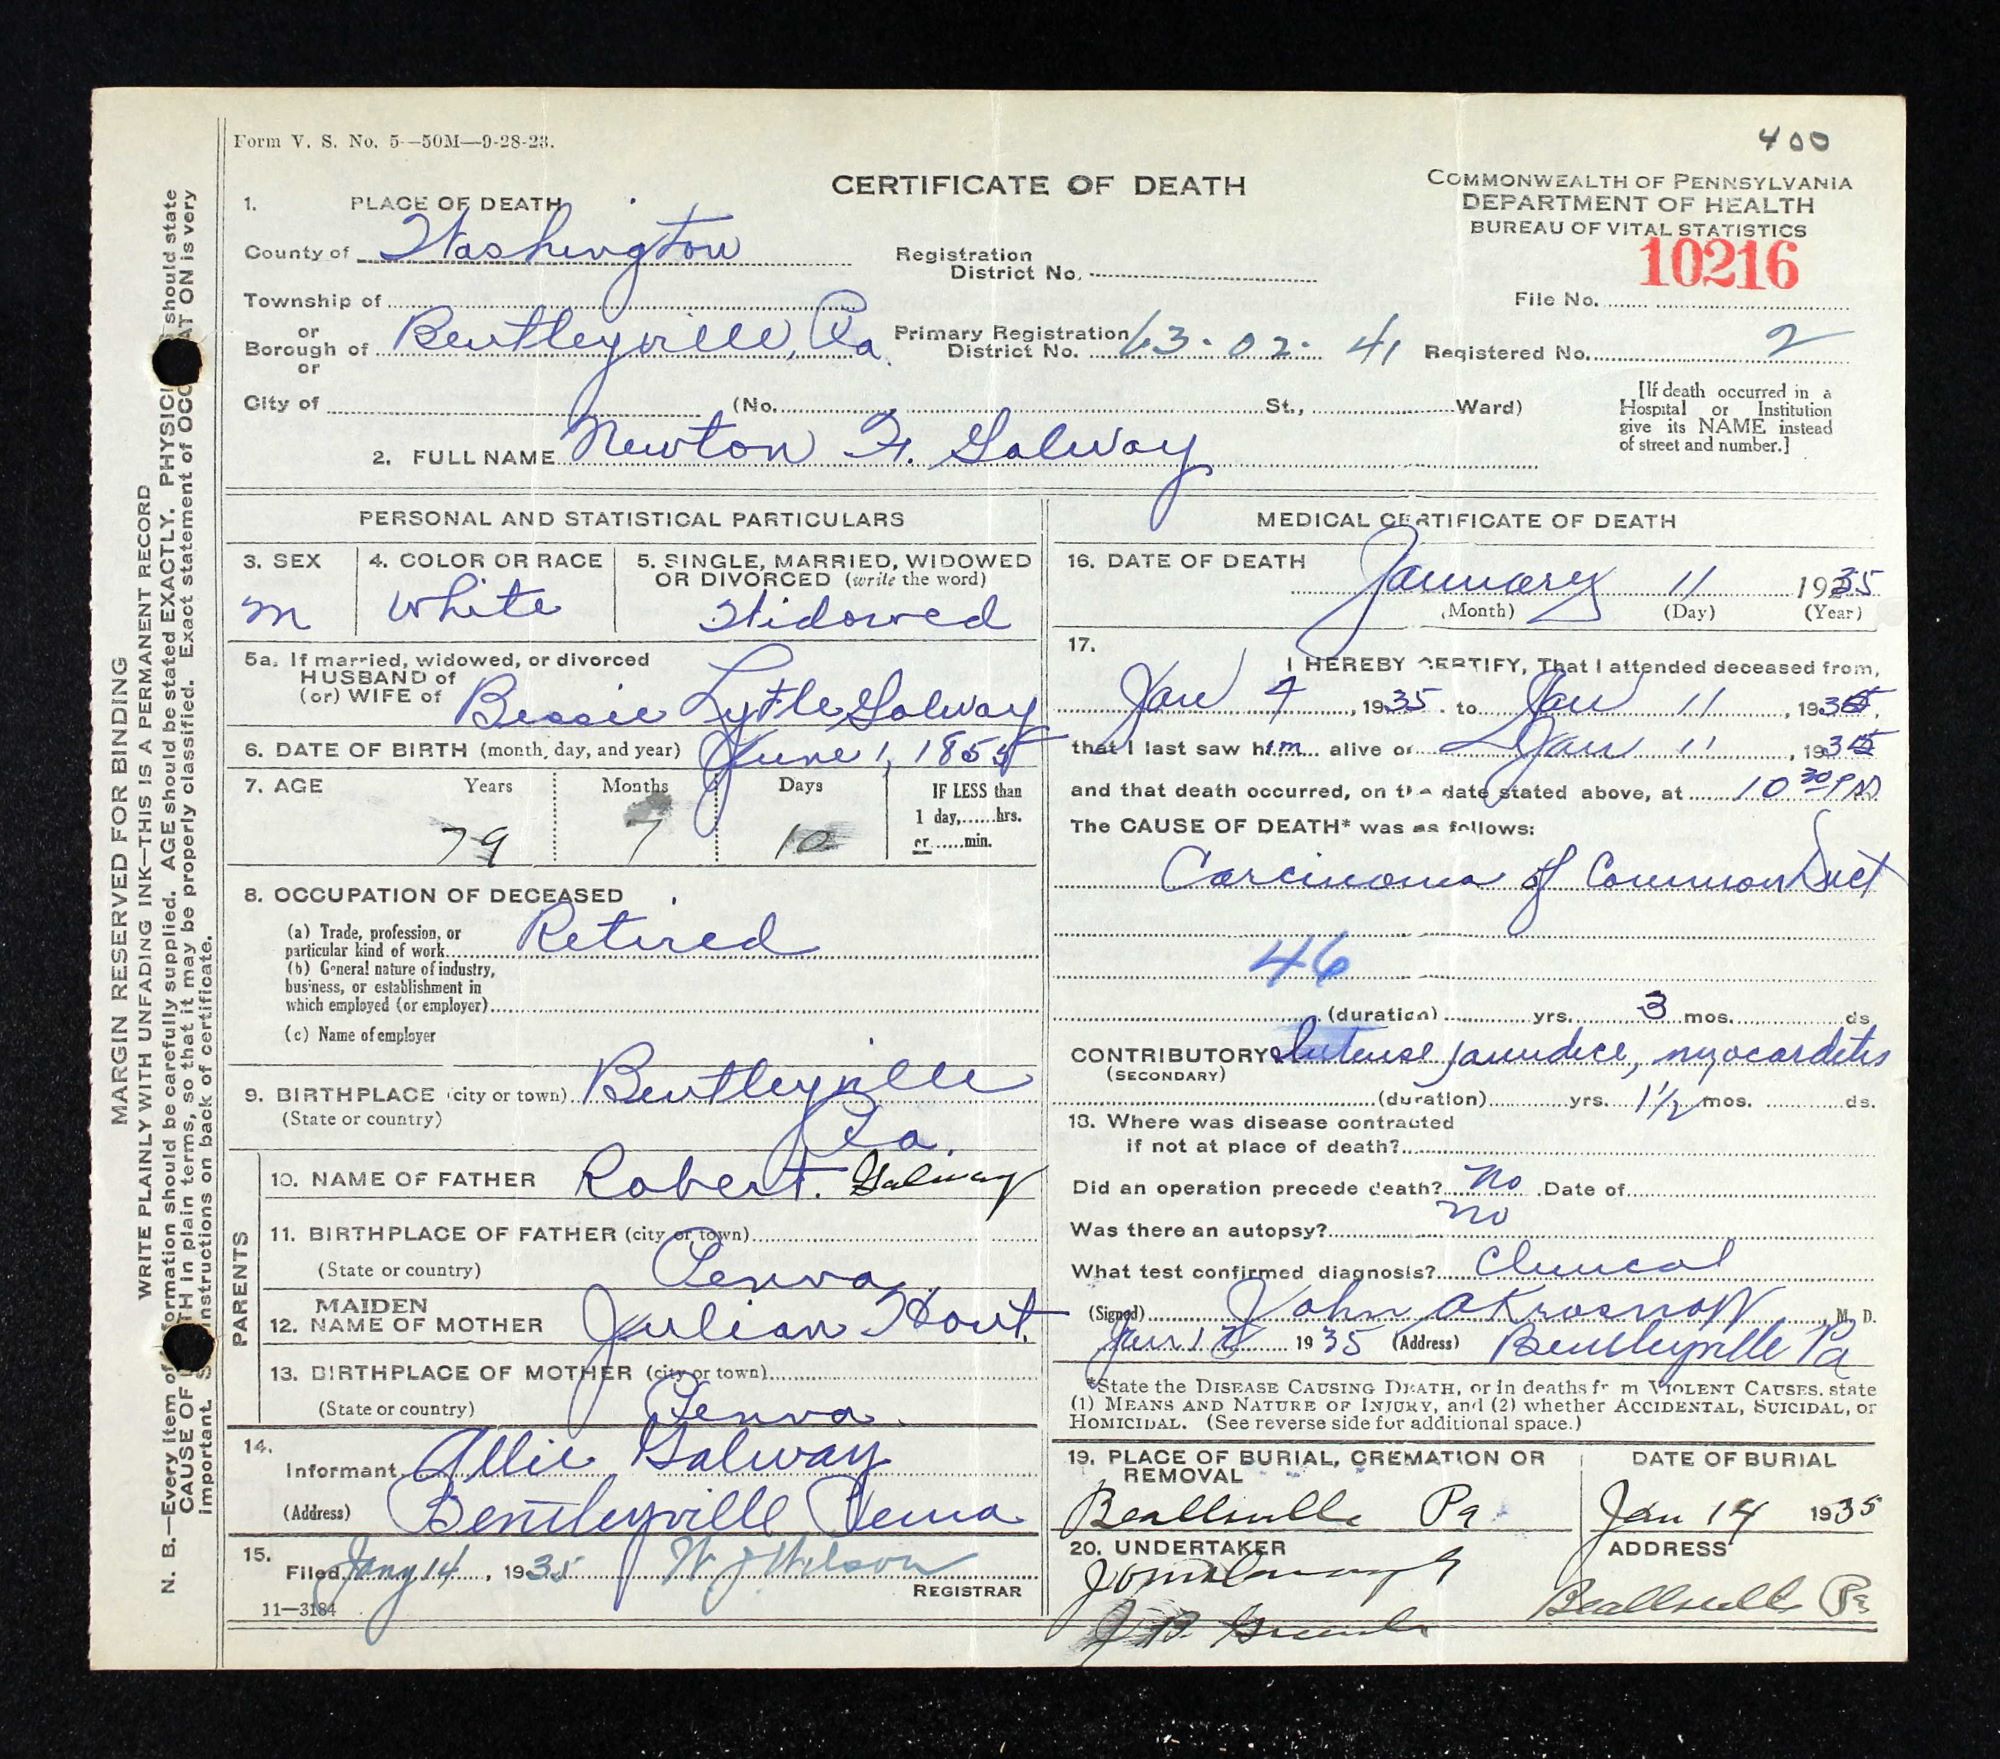 Form V. S. No. 5--50M—9-28-23.
400
CERTIFICATE OF DEATH
COMMONWEALTH OF PENNSYLVANIA
DEPARTMENT OF HEALTH
BUREAU OF VITAL STATISTICS
1. PLACE OF DEATH
County of Washington
Registration District No.
File No. 10216
Township of
or
Borough of Bentleyville, Pa
or
Primary Registration District No. 63-02-41
Registered No. 2
City of (No. St., Ward)
[If death occurred in a
Hospital or Institution
give its NAME instead
of street and number.]
2. FULL NAME Newton F. Galway
PERSONAL AND STATISTICAL PARTICULARS
3. SEX
m
4. COLOR OR RACE
White
5. SINGLE, MARRIED, WIDOWED
OR DIVORCED (write the word)
Widowed
5a. If married, widowed, or divorced
HUSBAND of
(or) WIFE of Bessie Lytle Galway
6. DATE OF BIRTH (month, day, and year) June 1, 1855
7. AGE Years Months Days
79 7 10
IF LESS than
1 day,......hrs.
or......min.
8. OCCUPATION OF DECEASED
(a) Trade, profession, or
particular kind of work Retired
(b) General nature of industry,
business, or establishment in
which employed (or employer)
(c) Name of employer
9. BIRTHPLACE (city or town) Bentleyville
(State or country) Pa.
PARENTS
10. NAME OF FATHER Robert. Galway
11. BIRTHPLACE OF FATHER (city or town)
(State or country) Penna.
12. MAIDEN NAME OF MOTHER Julian Hout.
13. BIRTHPLACE OF MOTHER (city or town)
(State or country) Penna.
14.
Informant Allie Galway
(Address) Bentleyville Penna
15.
Filed Jany 14, 1935 W J Wilson
REGISTRAR
11—3184
MEDICAL CERTIFICATE OF DEATH
16. DATE OF DEATH
January 11 1935
(Month) (Day) (Year)
17.
I HEREBY CERTIFY, That I attended deceased from,
Jan 4, 1935. to Jan 11, 1935.
that I last saw him alive on Jan 11, 1935
and that death occurred, on the date stated above, at 10 30 P M
The CAUSE OF DEATH* was as follows:
Carcinoma of Common Duct
46
(duration) yrs. 3 mos. ds
CONTRIBUTORY Intense jaundice, myocarditis
(SECONDARY)
(duration) yrs. 1½ mos. ds.
18. Where was disease contracted
if not at place of death?
Did an operation precede death? No Date of
Was there an autopsy? No
What test confirmed diagnosis? Clinical
(Signed) John A Krosnoff, M. D.
1935 (Address) Bentleyville Pa
*State the DISEASE CAUSING DEATH, or in deaths from VIOLENT CAUSES, state
(1) MEANS AND NATURE OF INJURY, and (2) whether ACCIDENTAL, SUICIDAL, or
HOMICIDAL. (See reverse side for additional space.)
19. PLACE OF BURIAL, CREMATION OR
REMOVAL
Beallsville Pa
DATE OF BURIAL
Jan 14 1935
20. UNDERTAKER
ADDRESS
Beallsville Pa
MARGIN RESERVED FOR BINDING
WRITE PLAINLY WITH UNFADING INK—THIS IS A PERMANENT RECORD
N. B.—Every item of information should be carefully supplied. AGE should be stated EXACTLY. PHYSICI should state
CAUSE OF TH in plain terms, so that it may be properly classified. Exact statement of OCC AT ON is very
important. S instructions on back of certificate.